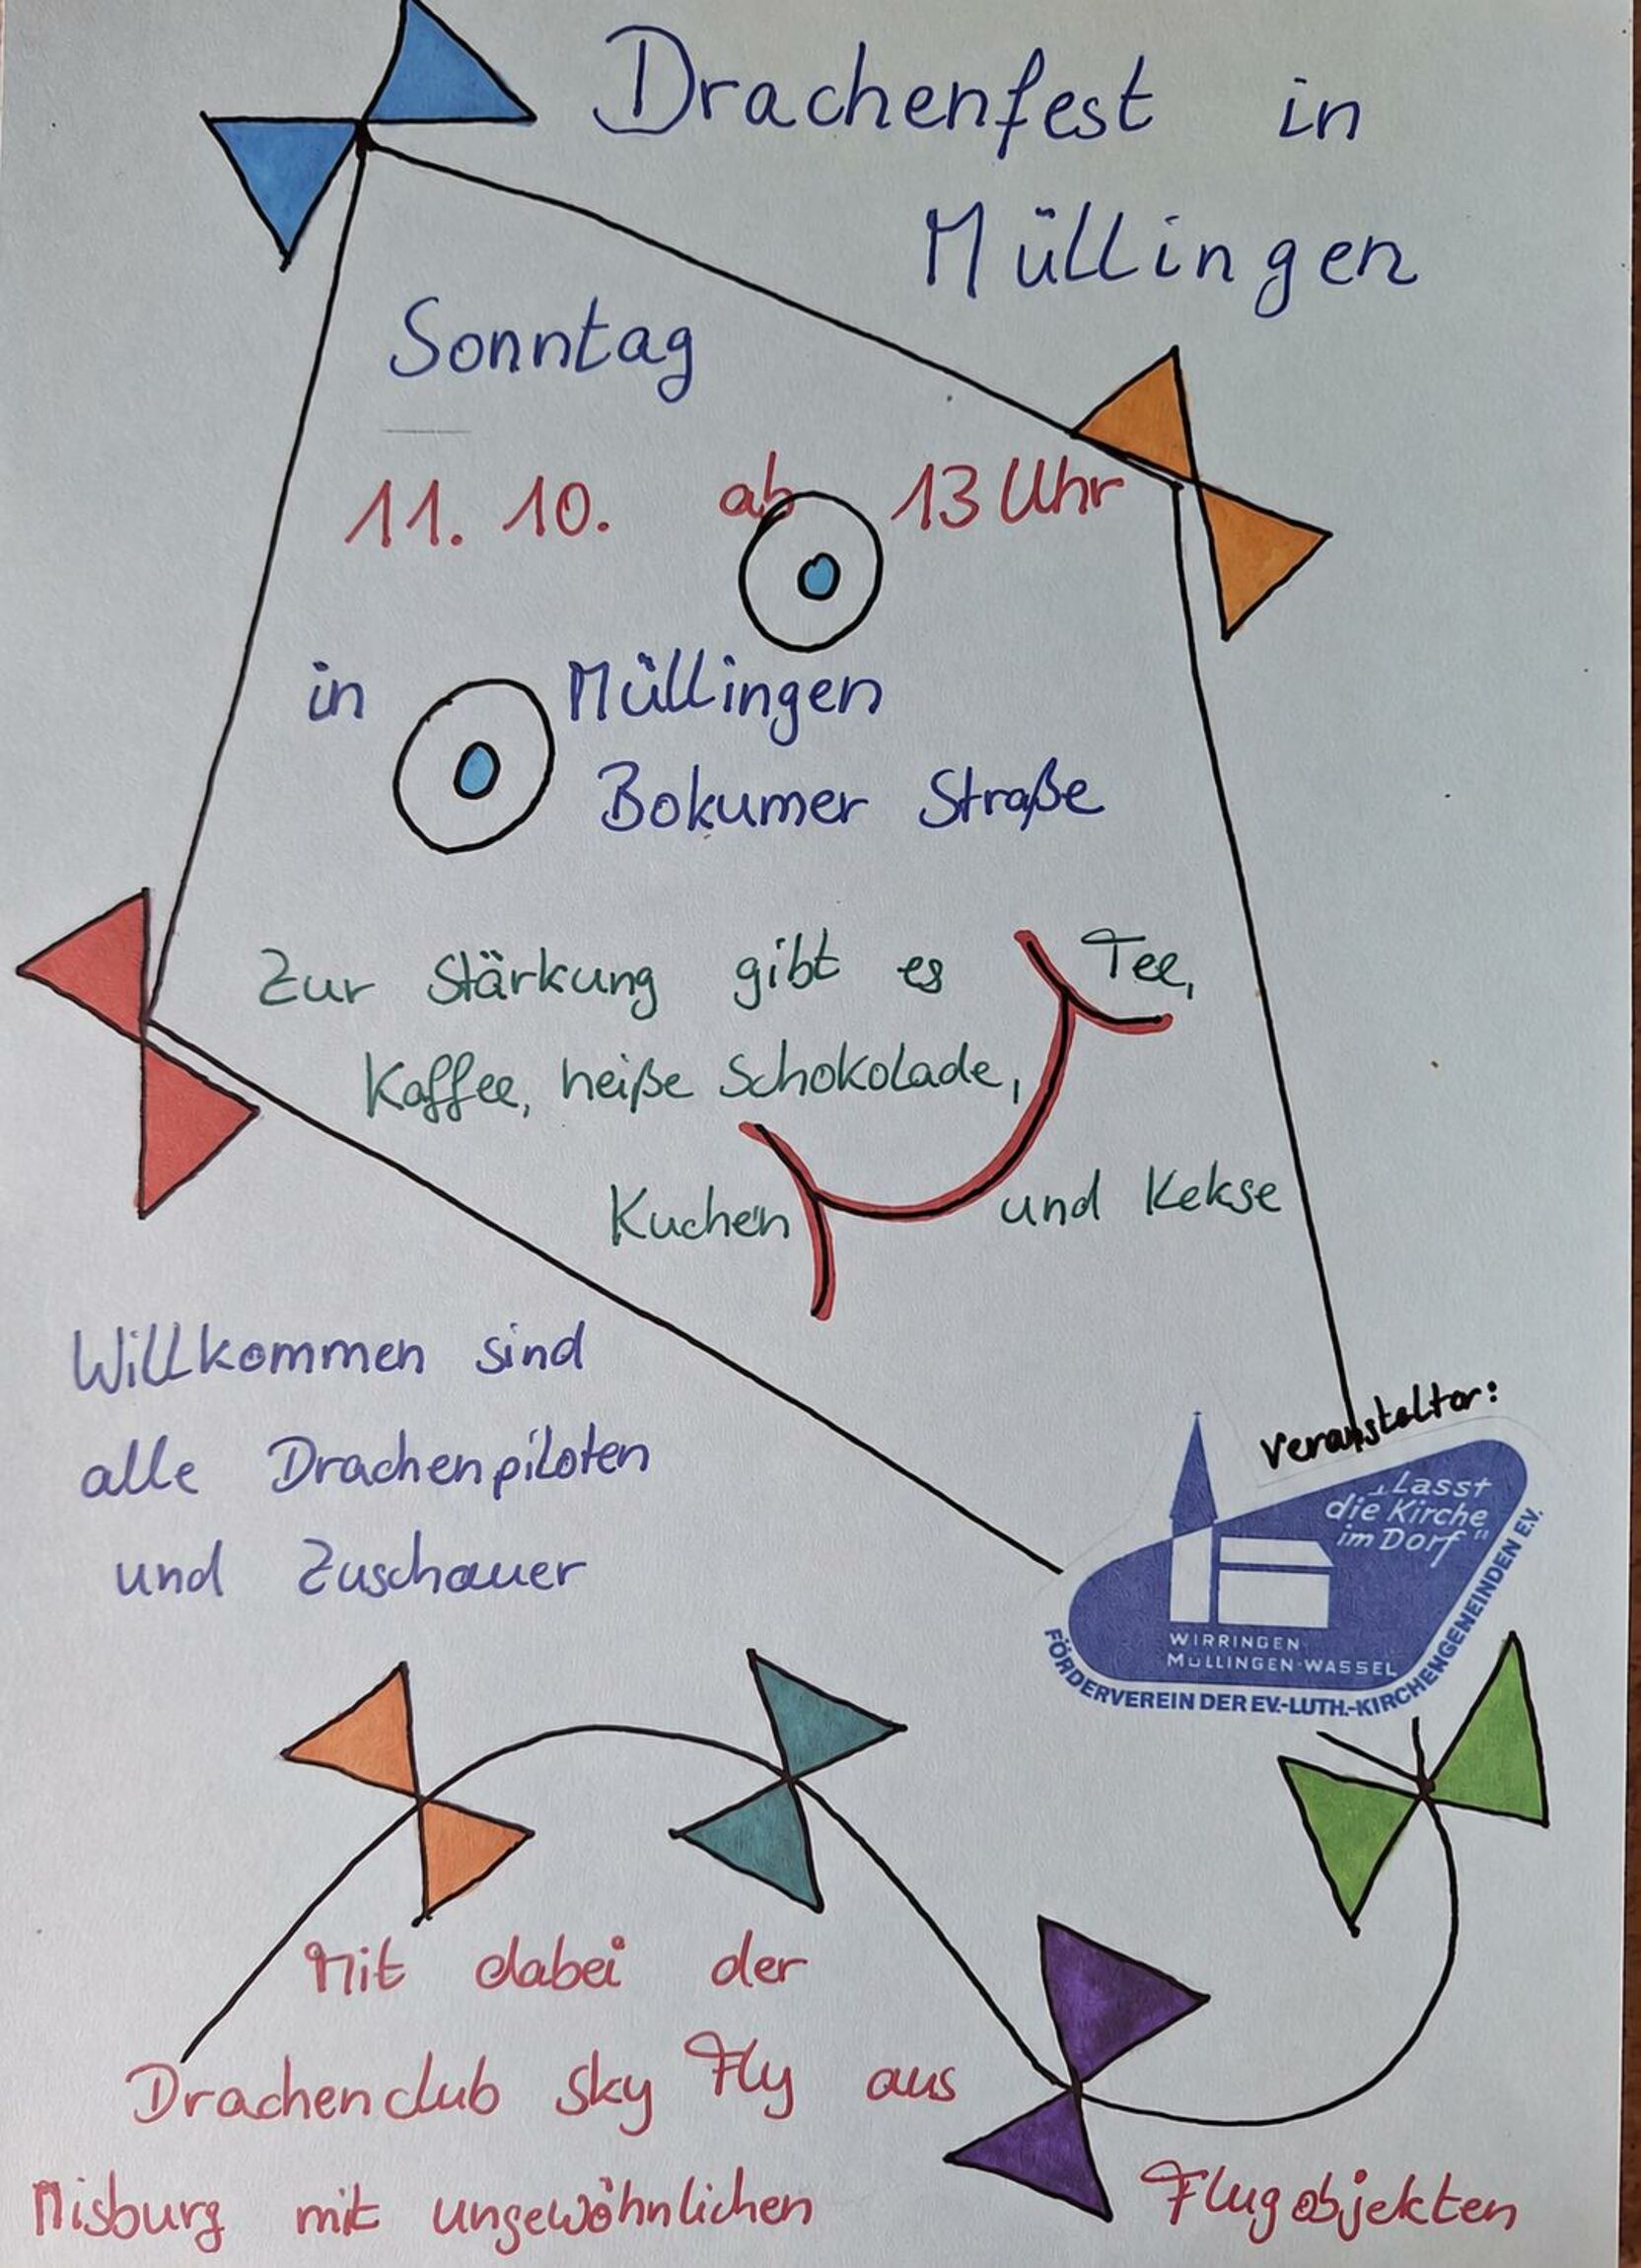 Drachenfest in
Müllingen
Sonntag
11. 10. ab 13 Uhr
in Müllingen
Bokumer Straße
Zur Stärkung gibt es Tee,
Kaffee, heiße Schokolade,
Kuchen und Kekse
Willkommen sind
alle Drachenpiloten
und Zuschauer
Veranstalter:
„Lasst
die Kirche
im Dorf“
WIRRINGEN
MÜLLINGEN-WASSEL
FÖRDERVEREIN DER EV.-LUTH.-KIRCHENGENEINDEN E.V.
Mit dabei der
Drachenclub Sky Fly aus
Misburg mit ungewöhnlichen Flugobjekten